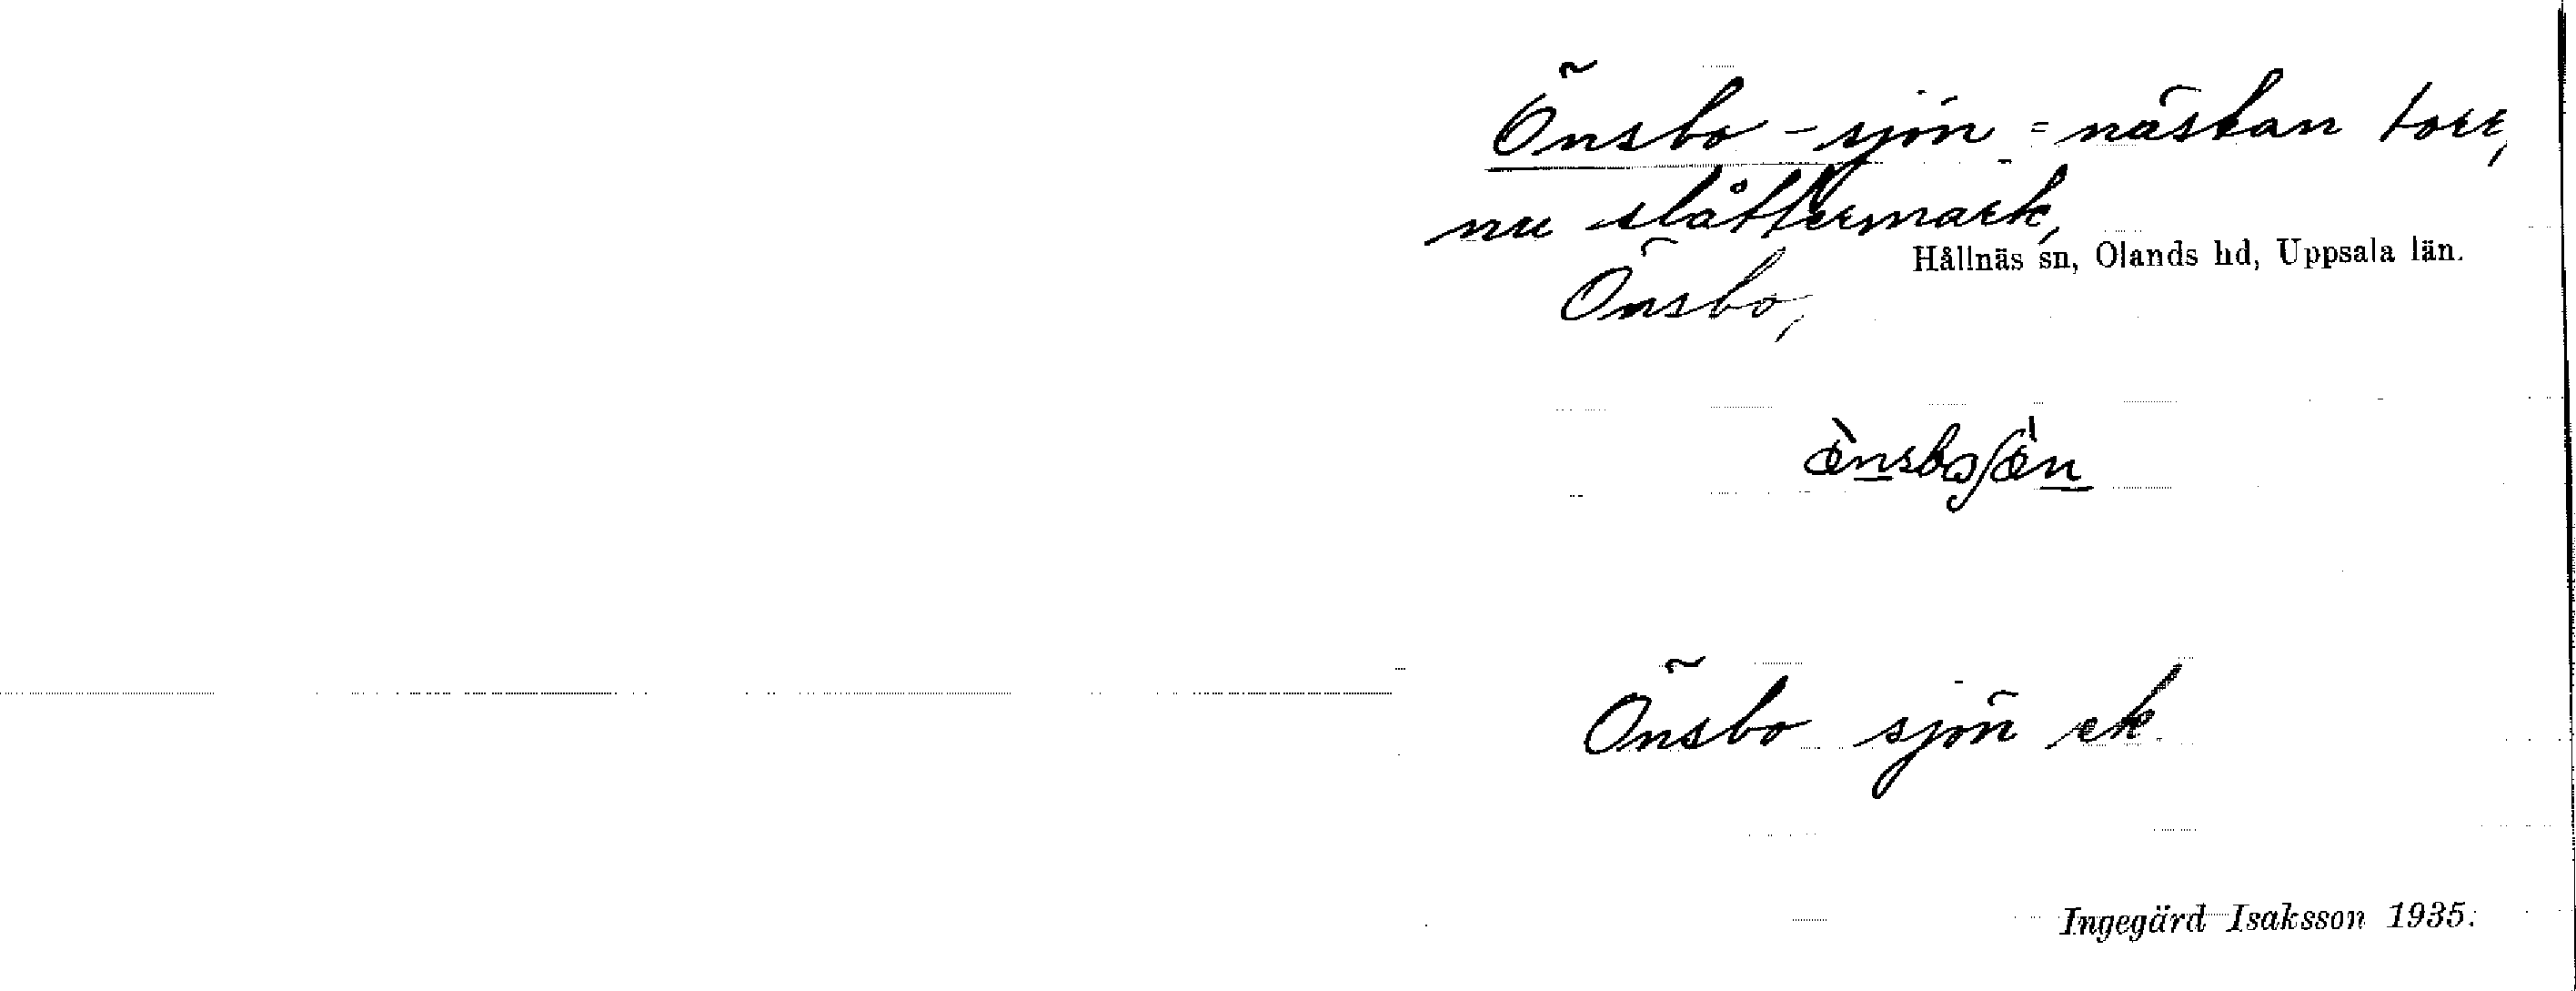 Önsbo-sjön = nästan torr,
nu slåttermark,
Hållnäs sn, Olands hd, Uppsala län.
Önsbo,
Önsbo sjön ek.
Ingegärd Isaksson 1935.